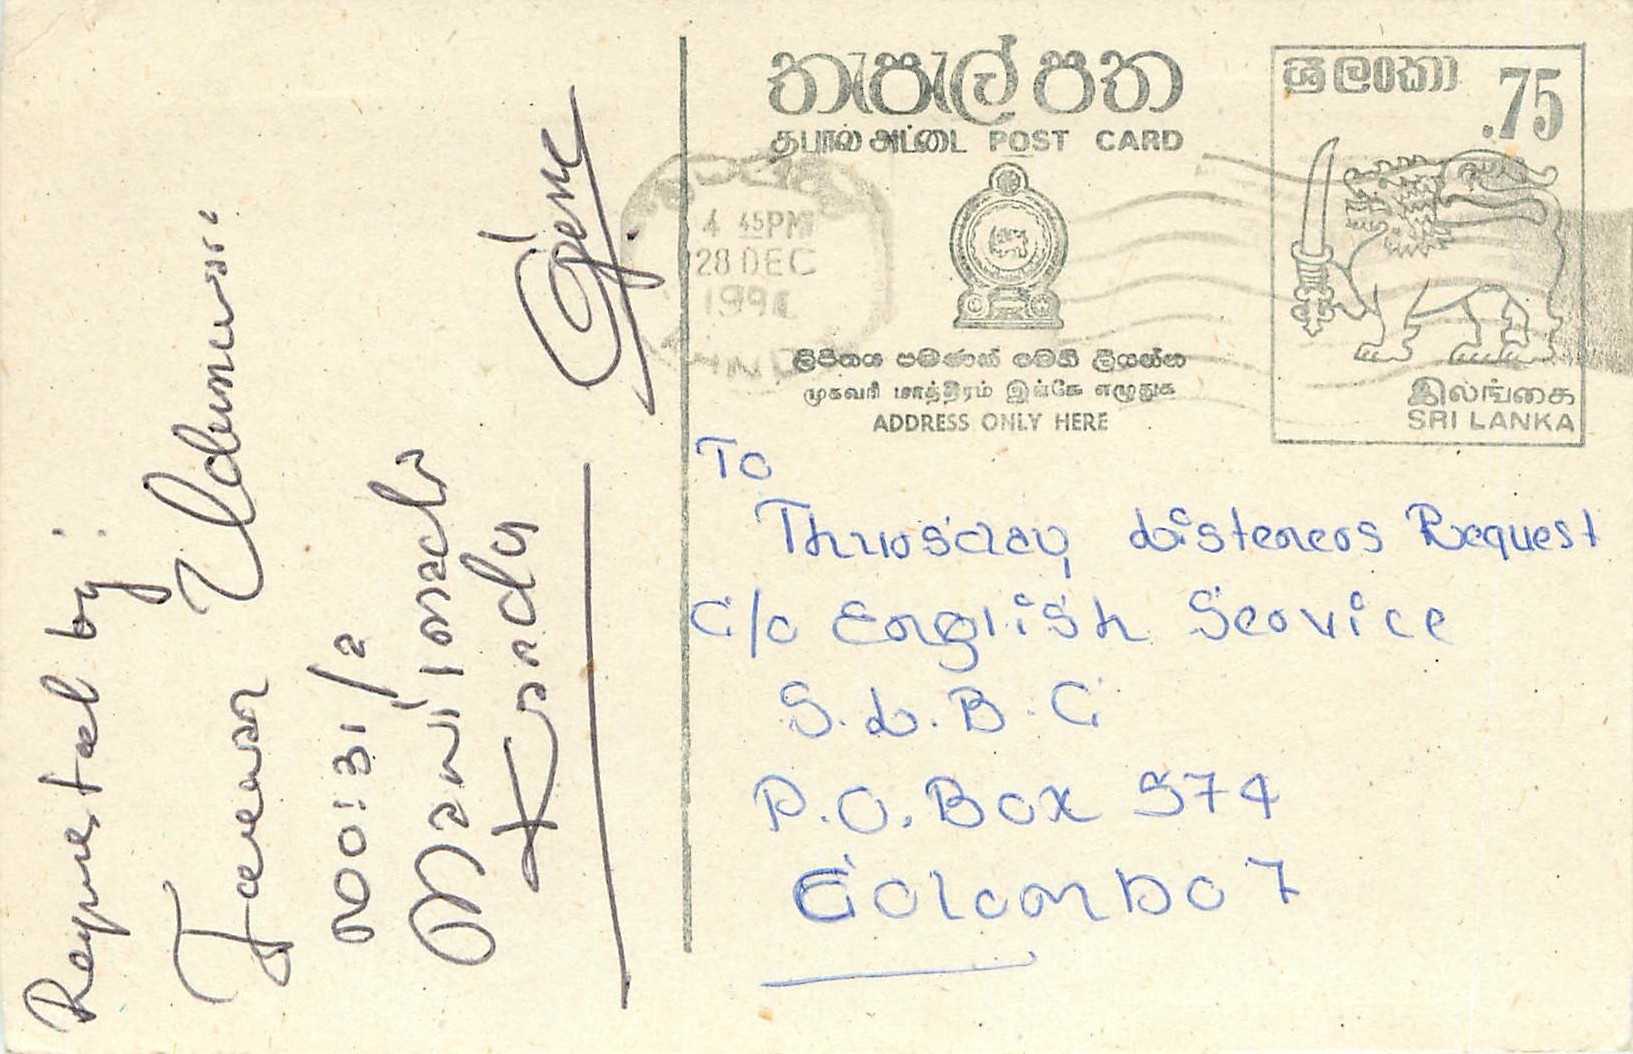 තැපැල් පත
தபால் அட்டை POST CARD
ශ්‍රී ලංකා .75
4 45PM
28 DEC
ලිපිනය පමණක් මෙහි ලියන්න
முகவரி மாத்திரம் இங்கே எழுதுக
ADDRESS ONLY HERE
இலங்கை
SRI LANKA
To
Thursday Listeners Request
C/o English Service
S.L.B.C
P.O. Box 574
Colombo 7
Requested by:
31/2
Kandy